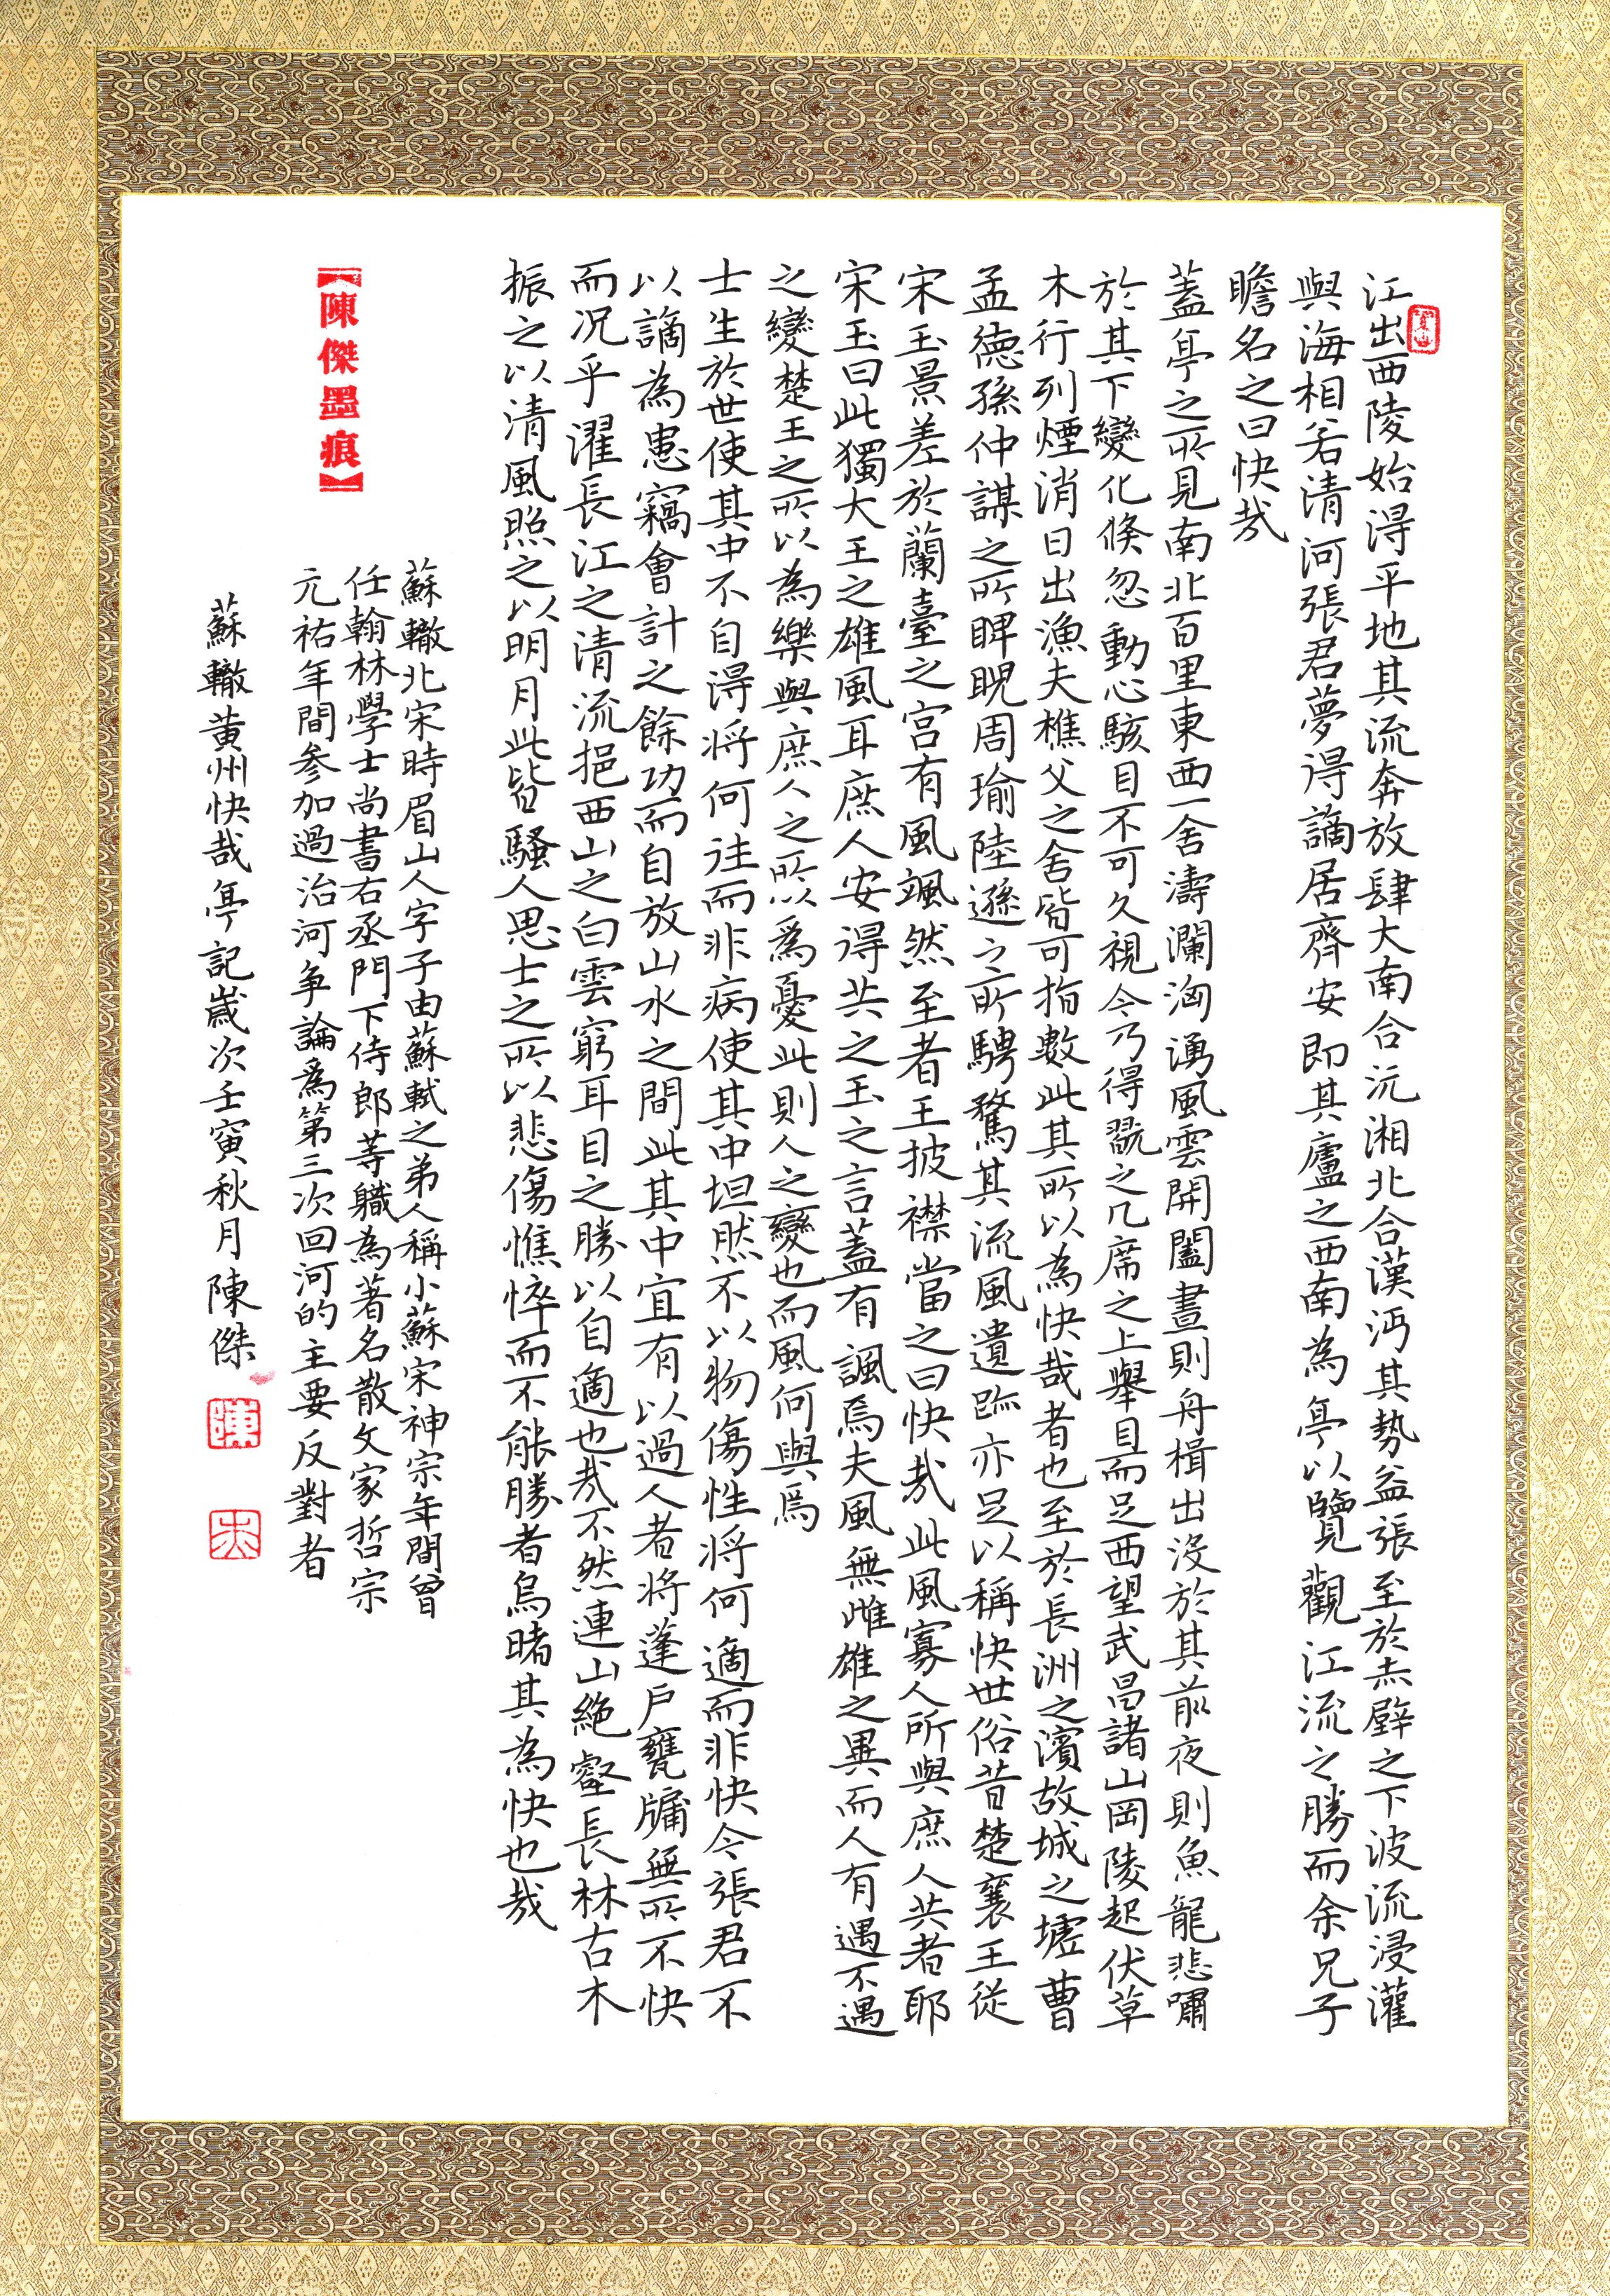 江出西陵始得平地其流奔放肆大南合沅湘北合漢沔其勢益張至於赤壁之下波流浸灌
與海相若清河張君夢得謫居齊安即其廬之西南為亭以覽觀江流之勝而余兄子
瞻名之曰快哉
蓋亭之所見南北百里東西一舍濤瀾洶湧風雲開闔晝則舟楫出沒於其前夜則魚龍悲嘯
於其下變化倏忽動心駭目不可久視今乃得翫之几席之上舉目而足西望武昌諸山岡陵起伏草
木行列煙消日出漁夫樵父之舍皆可指數此其所以為快哉者也至於長洲之濱故城之墟曹
孟德孫仲謀之所睥睨周瑜陸遜之所騁騖其流風遺跡亦足以稱快世俗昔楚襄王從
宋玉景差於蘭臺之宮有風颯然至者王披襟當之曰快哉此風寡人所與庶人共者耶
宋玉曰此獨大王之雄風耳庶人安得共之玉之言蓋有諷焉夫風無雌雄之異而人有遇不遇
之變楚王之所以為樂與庶人之所以為憂此則人之變也而風何與焉
士生於世使其中不自得將何往而非病使其中坦然不以物傷性將何適而非快今張君不
以謫為患竊會計之餘功而自放山水之間此其中宜有以過人者將蓬戶甕牖無所不快
而況乎濯長江之清流挹西山之白雲窮耳目之勝以自適也哉不然連山絕壑長林古木
振之以清風照之以明月此皆騷人思士之所以悲傷憔悴而不能勝者烏睹其為快也哉
蘇轍北宋時眉山人字子由蘇軾之弟人稱小蘇宋神宗年間曾
任翰林學士尚書右丞門下侍郎等職為著名散文家哲宗
元祐年間參加過治河爭論為第三次回河的主要反對者
【陳傑墨痕】
蘇轍黃州快哉亭記歲次壬寅秋月陳傑
陳